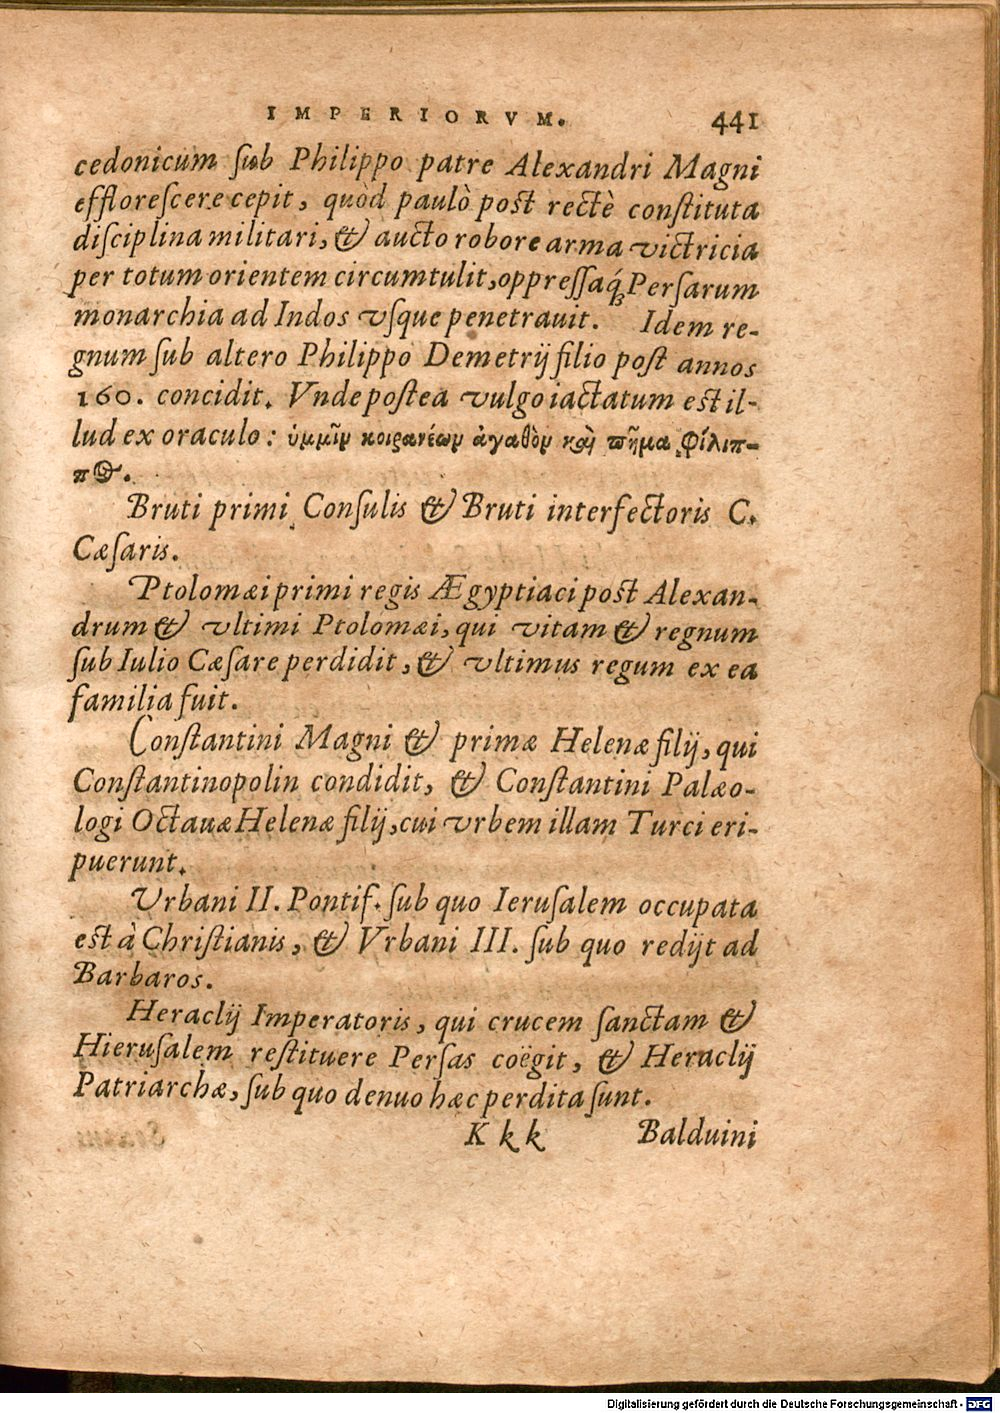 IMPERIORVM. 441
cedonicum ſub Philippo patre Alexandri Magni
effloreſcere cepit, quòd paulò poſt rectè conſtituta
diſciplina militari, & aucto robore arma victricia
per totum orientem circumtulit, oppreſſaq́; Perſarum
monarchia ad Indos vſque penetrauit. Idem re-
gnum ſub altero Philippo Demetrij filio poſt annos
160. concidit. Vnde poſtea vulgo iactatum eſt il-
lud ex oraculo: ὑμμῖν κοιρανέων ἀγαθὸν καὶ πῆμα φίλιπ-
πος.
Bruti primi Conſulis & Bruti interfectoris C.
Cæſaris.
Ptolomæi primi regis Ægyptiaci poſt Alexan-
drum & vltimi Ptolomæi, qui vitam & regnum
ſub Iulio Cæſare perdidit, & vltimus regum ex ea
familia fuit.
Conſtantini Magni & primæ Helenæ filij, qui
Conſtantinopolin condidit, & Conſtantini Palæo-
logi Octauæ Helenæ filij, cui vrbem illam Turci eri-
puerunt.
Vrbani II. Pontif. ſub quo Ieruſalem occupata
eſt à Chriſtianis, & Vrbani III. ſub quo redijt ad
Barbaros.
Heraclij Imperatoris, qui crucem ſanctam &
Hieruſalem reſtituere Perſas coëgit, & Heraclij
Patriarchæ, ſub quo denuo hæc perdita ſunt.
K k k Balduini
Digitalisierung gefördert durch die Deutsche Forschungsgemeinschaft - DFG